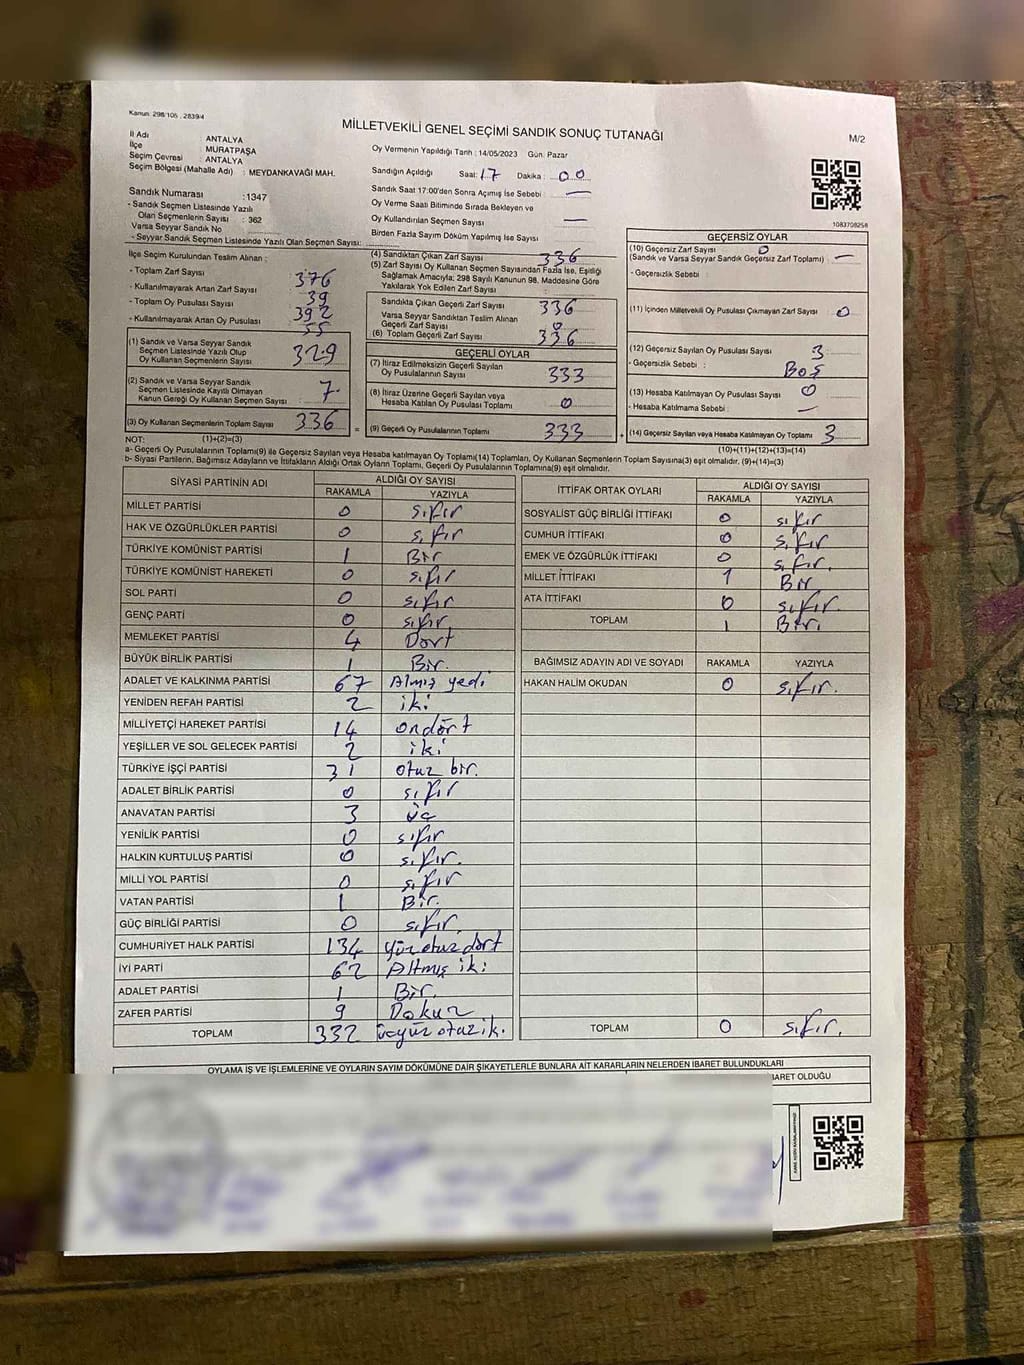 Kanun: 298/105 , 2839/4
MİLLETVEKİLİ GENEL SEÇİMİ SANDIK SONUÇ TUTANAĞI
M/2
İl Adı ANTALYA
İlçe MURATPAŞA
Seçim Çevresi : ANTALYA
Seçim Bölgesi (Mahalle Adı) : MEYDANKAVAĞI MAH.
Sandık Numarası :1347
- Sandık Seçmen Listesinde Yazılı
Olan Seçmenlerin Sayısı : 362
Varsa Seyyar Sandık No
- Seyyar Sandık Seçmen Listesinde Yazılı Olan Seçmen Sayısı:
Oy Vermenin Yapıldığı Tarih : 14/05/2023 Gün: Pazar
Sandığın Açıldığı Saat: 17 Dakika : 00
Sandık Saat 17:00'den Sonra Açımış İse Sebebi : —
Oy Verme Saati Bitiminde Sırada Bekleyen ve
Oy Kullandırılan Seçmen Sayısı —
Birden Fazla Sayım Döküm Yapılmış İse Sayısı
1083708258
İlçe Seçim Kurulundan Teslim Alınan :
- Toplam Zarf Sayısı : 376
- Kullanılmayarak Artan Zarf Sayısı : 39
- Toplam Oy Pusulası Sayısı : 392
- Kullanılmayarak Artan Oy Pusulası : 55
(1) Sandık ve Varsa Seyyar Sandık
Seçmen Listesinde Yazılı Olup
Oy Kullanan Seçmenlerin Sayısı : 329
(2) Sandık ve Varsa Seyyar Sandık
Seçmen Listesinde Kayıtlı Olmayan
Kanun Gereği Oy Kullanan Seçmen Sayısı : 7
(3) Oy Kullanan Seçmenlerin Toplam Sayısı : 336
(4) Sandıktan Çıkan Zarf Sayısı : 336
(5) Zarf Sayısı Oy Kullanan Seçmen Sayısından Fazla İse, Eşitliği
Sağlamak Amacıyla; 298 Sayılı Kanunun 98. Maddesine Göre
Yakılarak Yok Edilen Zarf Sayısı :
Sandıkta Çıkan Geçerli Zarf Sayısı : 336
Varsa Seyyar Sandıktan Teslim Alınan
Geçerli Zarf Sayısı : 0
(6) Toplam Geçerli Zarf Sayısı : 336
GEÇERLİ OYLAR
(7) İtiraz Edilmeksizin Geçerli Sayılan
Oy Pusulalarının Sayısı : 333
(8) İtiraz Üzerine Geçerli Sayılan veya
Hesaba Katılan Oy Pusulası Toplamı : 0
= (9) Geçerli Oy Pusulalarının Toplamı : 333
GEÇERSİZ OYLAR
(10) Geçersiz Zarf Sayısı : 0
(Sandık ve Varsa Seyyar Sandık Geçersiz Zarf Toplamı) : —
- Geçersizlik Sebebi :
(11) İçinden Milletvekili Oy Pusulası Çıkmayan Zarf Sayısı : 0
(12) Geçersiz Sayılan Oy Pusulası Sayısı : 3
- Geçersizlik Sebebi : BOŞ
(13) Hesaba Katılmayan Oy Pusulası Sayısı : 0
- Hesaba Katılmama Sebebi : —
+ (14) Geçersiz Sayılan veya Hesaba Katılmayan Oy Toplamı : 3
NOT: (1)+(2)=(3) (10)+(11)+(12)+(13)=(14)
a- Geçerli Oy Pusulalarının Toplamı(9) ile Geçersiz Sayılan veya Hesaba Katılmayan Oy Toplamı(14) Toplamları, Oy Kullanan Seçmenlerin Toplam Sayısına(3) eşit olmalıdır. (9)+(14)=(3)
b- Siyasi Partilerin, Bağımsız Adayların ve İttifakların Aldığı Ortak Oyların Toplamı, Geçerli Oy Pusulalarının Toplamına(9) eşit olmalıdır.
SİYASİ PARTİNİN ADI ALDIĞI OY SAYISI
RAKAMLA YAZIYLA
MİLLET PARTİSİ 0 sıfır
HAK VE ÖZGÜRLÜKLER PARTİSİ 0 sıfır
TÜRKİYE KOMÜNİST PARTİSİ 1 Bir
TÜRKİYE KOMÜNİST HAREKETİ 0 sıfır
SOL PARTİ 0 sıfır
GENÇ PARTİ 0 sıfır
MEMLEKET PARTİSİ 4 Dört
BÜYÜK BİRLİK PARTİSİ 1 Bir.
ADALET VE KALKINMA PARTİSİ 67 Almış yedi
YENİDEN REFAH PARTİSİ 2 iki
MİLLİYETÇİ HAREKET PARTİSİ 14 ondört
YEŞİLLER VE SOL GELECEK PARTİSİ 2 iki
TÜRKİYE İŞÇİ PARTİSİ 31 otuz bir.
ADALET BİRLİK PARTİSİ 0 sıfır
ANAVATAN PARTİSİ 3 üç
YENİLİK PARTİSİ 0 sıfır
HALKIN KURTULUŞ PARTİSİ 0 sıfır.
MİLLİ YOL PARTİSİ 0 sıfır
VATAN PARTİSİ 1 Bir.
GÜÇ BİRLİĞİ PARTİSİ 0 sıfır.
CUMHURİYET HALK PARTİSİ 134 Yüzotuzdört
İYİ PARTİ 62 Altmış iki
ADALET PARTİSİ 1 Bir.
ZAFER PARTİSİ 9 Dokuz
TOPLAM 332 üçyüz otuziki.
İTTİFAK ORTAK OYLARI ALDIĞI OY SAYISI
RAKAMLA YAZIYLA
SOSYALİST GÜÇ BİRLİĞİ İTTİFAKI 0 sıfır
CUMHUR İTTİFAKI 0 sıfır
EMEK VE ÖZGÜRLÜK İTTİFAKI 0 sıfır.
MİLLET İTTİFAKI 1 Bir
ATA İTTİFAKI 0 sıfır.
TOPLAM 1 Bir.
BAĞIMSIZ ADAYIN ADI VE SOYADI RAKAMLA YAZIYLA
HAKAN HALİM OKUDAN 0 sıfır.
TOPLAM 0 sıfır.
OYLAMA İŞ VE İŞLEMLERİNE VE OYLARIN SAYIM DÖKÜMÜNE DAİR ŞİKAYETLERLE BUNLARA AİT KARARLARIN NELERDEN İBARET BULUNDUKLARI
BARET OLDUĞU